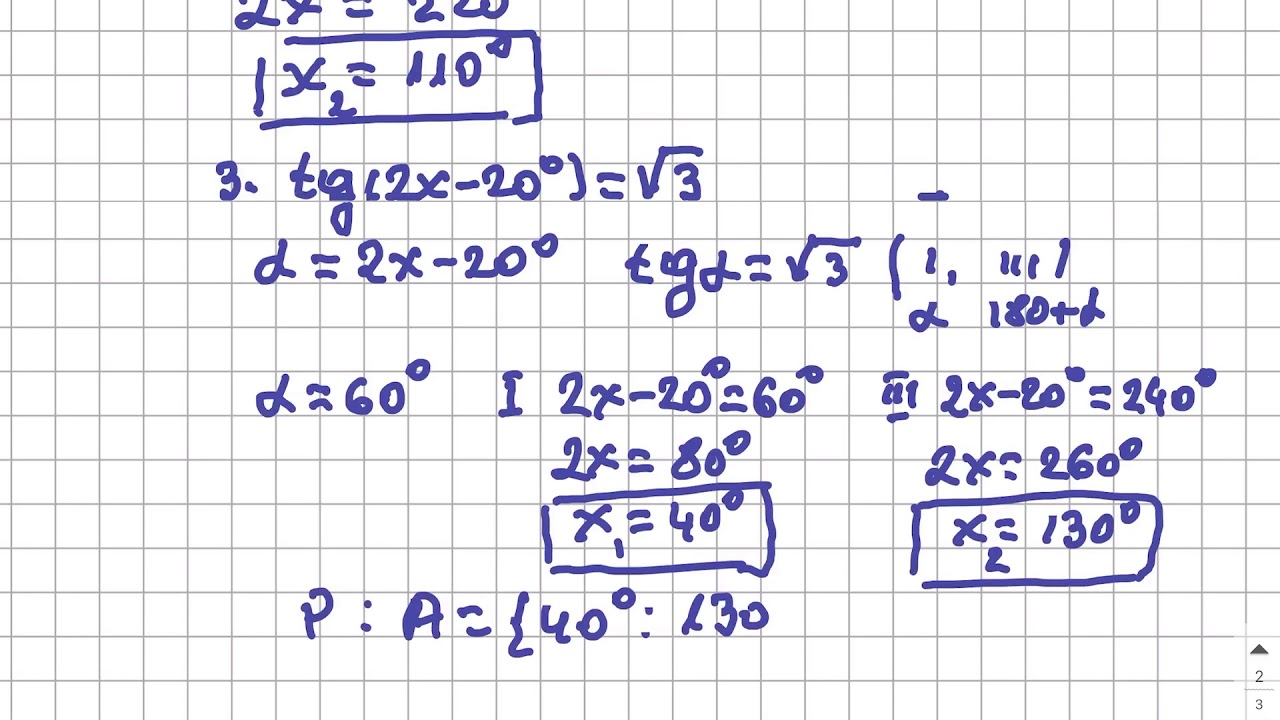 2x = 220
x₂ = 110°
3. tg(2x-20°) = √3
α = 2x-20° tgα = √3 (I, III)
α 180+α
α = 60° I 2x-20° = 60° III 2x-20° = 240°
2x = 80° 2x = 260°
x₁ = 40° x₂ = 130°
P : A = {40° : 130
2
3